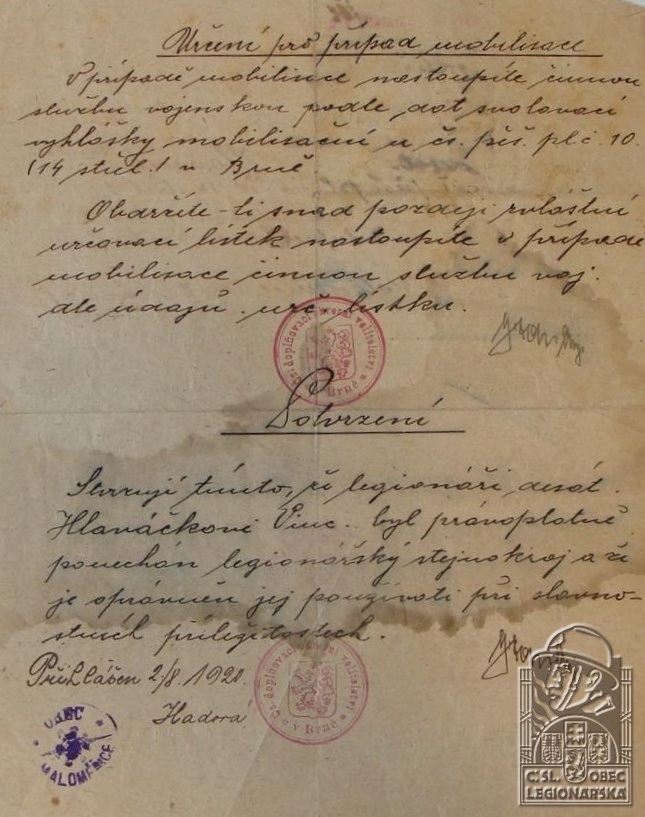 Určení pro případ mobilisace
V případě mobilisace nastoupíte činnou
službu vojenskou podle dat svolávací
vyhlášky mobilisační u čs. pěš. pl. č. 10.
(14 střel.) v Brně
Obdržíte-li snad později zvláštní
určovací lístek nastoupíte v případě
mobilisace činnou službu voj.
dle údajů urč. lístku.
Čs. doplňovací okresní velitelství
v Brně
Potvrzení
Stvrzuji tímto, že legionáři desát.
Hlaváčkovi Vinc. byl právoplatně
ponechán legionářský stejnokroj a že
je oprávněn jej používati při slavno-
stních příležitostech.
Přihlášen 2./8. 1920.
Čs. doplňovací okresní velitelství
v Brně
OBEC
MALOMĚŘICE
Č.SL. OBEC
LEGIONÁŘSKÁ